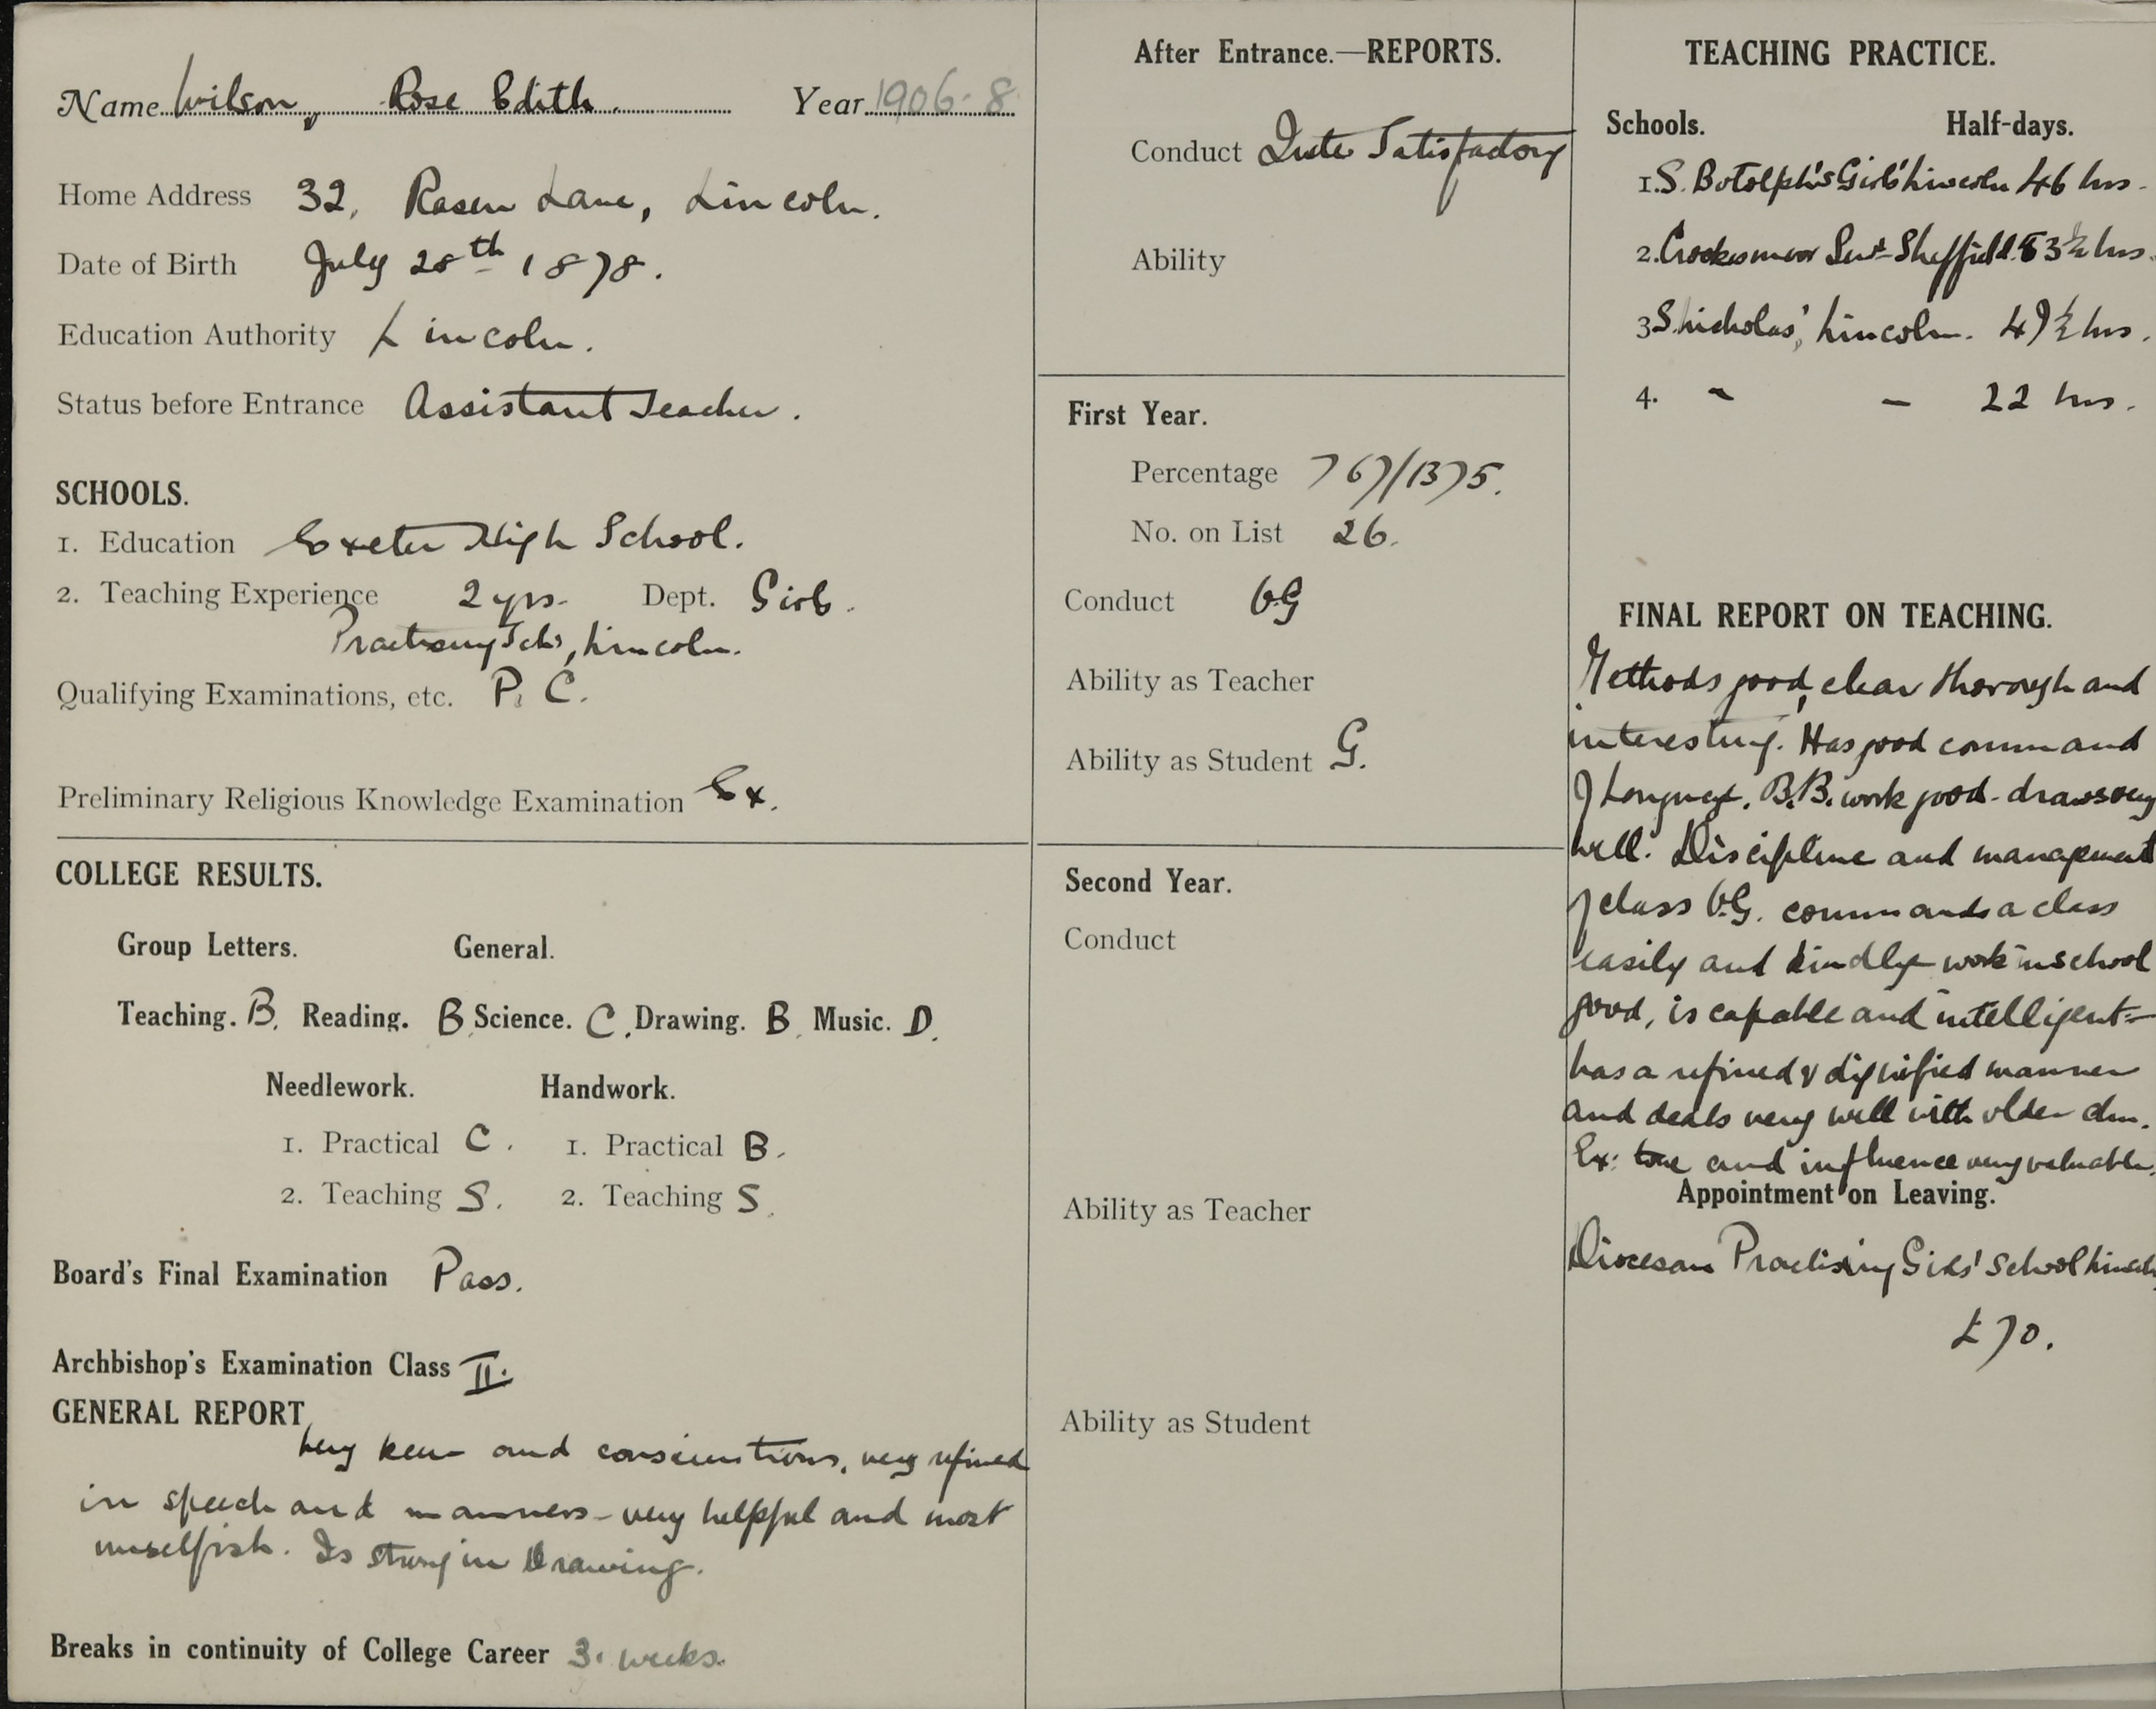 Name Wilson, Rose Edith. Year 1906-8
Home Address 32, Rasen Lane, Lincoln.
Date of Birth July 28th 1878.
Education Authority Lincoln.
Status before Entrance Assistant Teacher.
SCHOOLS.
1. Education Exeter High School.
2. Teaching Experience 2 yrs. Dept. Girls.
Practising Schs, Lincoln.
Qualifying Examinations, etc. P. C.
Preliminary Religious Knowledge Examination Ex.
COLLEGE RESULTS.
Group Letters. General.
Teaching. B. Reading. B Science. C. Drawing. B. Music. D.
Needlework. Handwork.
1. Practical C. 1. Practical B.
2. Teaching S. 2. Teaching S.
Board's Final Examination Pass.
Archbishop's Examination Class II.
GENERAL REPORT
Very keen and conscientious, very refined
in speech and manners - very helpful and most
unselfish. Is strong in Drawing.
Breaks in continuity of College Career 3. weeks.
After Entrance.—REPORTS.
Conduct Quite Satisfactory
Ability
First Year.
Percentage 767/1375.
No. on List 26.
Conduct V.G
Ability as Teacher
Ability as Student G.
Second Year.
Conduct
Ability as Teacher
Ability as Student
TEACHING PRACTICE.
Schools. Half-days.
1. S. Botolph's Girls' Lincoln 46 hrs.
2. Crookesmoor Sheffield. 53½ hrs.
3 S. Nicholas', Lincoln. 47½ hrs.
4. " - 22 hrs.
FINAL REPORT ON TEACHING.
Methods good, clear thorough and
interesting. Has good command
of Language. B.B. work good - draws very
well. Discipline and management
of class V.G. commands a class
easily and kindly - work in school
good, is capable and intelligent -
has a refined & dignified manner
and deals very well with older chn.
Ex: tone and influence very valuable.
Appointment on Leaving.
Diocesan Practising Girls' School Lincoln
£70.